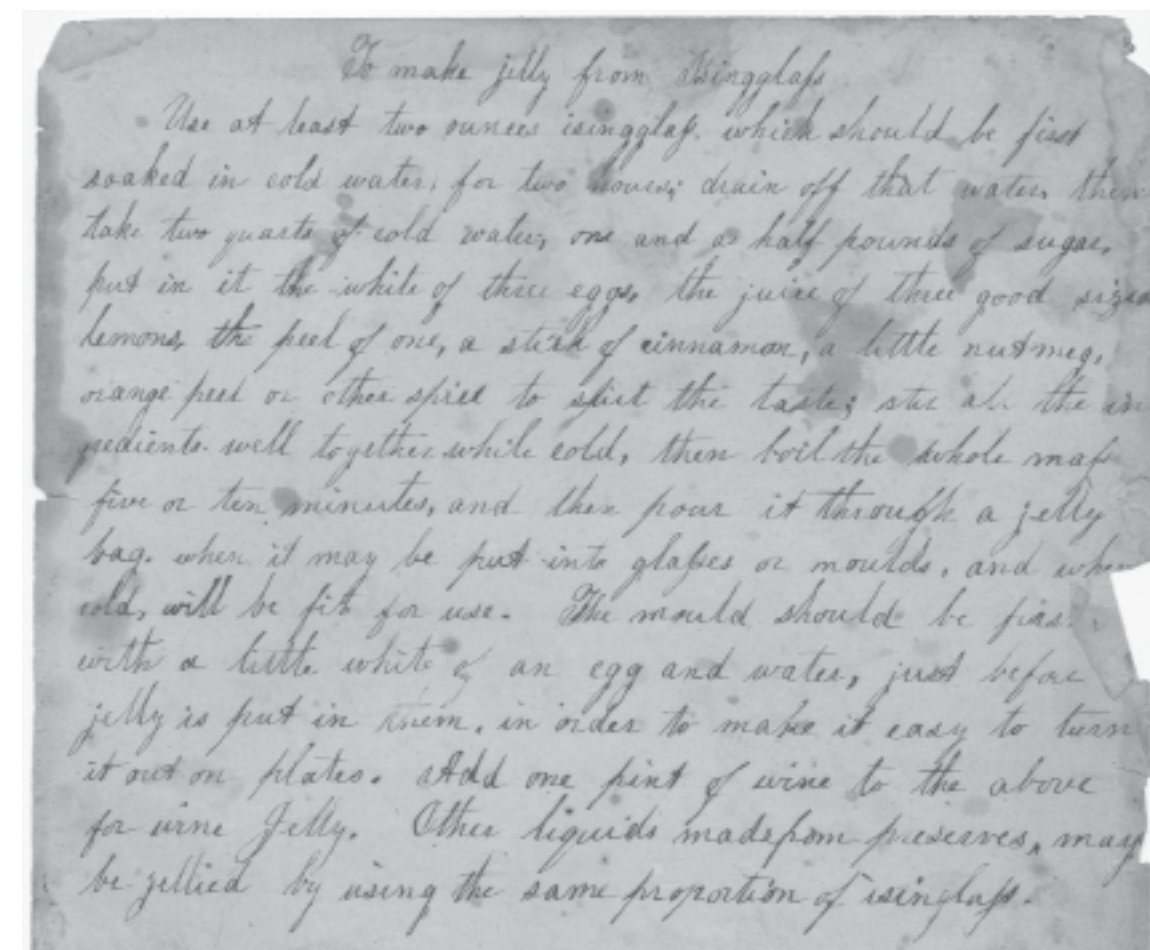 To make jelly from Isingglass
Use at least two ounces isingglass. which should be first
soaked in cold water, for two hours; drain off that water, then
take two quarts of cold water, one and a half pounds of sugar,
put in it the white of three eggs, the juice of three good sized
lemons, the peel of one, a stick of cinnamon, a little nutmeg,
orange peel or other spice to suit the taste; stir all the in
gredients well together while cold, then boil the whole mass
five or ten minutes, and then pour it through a jelly
bag. when it may be put into glasses or moulds, and when
cold, will be fit for use. The mould should be first
with a little white of an egg and water, just before
jelly is put in them, in order to make it easy to turn
it out on plates. Add one pint of wine to the above
for wine Jelly. Other liquids made from preserves, may
be jellied by using the same proportion of isinglass.